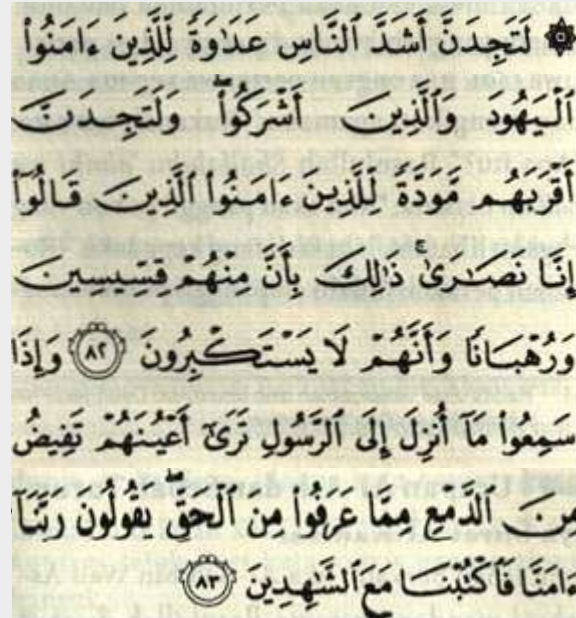 ۞ لَتَجِدَنَّ أَشَدَّ ٱلنَّاسِ عَدَٰوَةً لِّلَّذِينَ ءَامَنُوا۟
ٱلْيَهُودَ وَٱلَّذِينَ أَشْرَكُوا۟ ۖ وَلَتَجِدَنَّ
أَقْرَبَهُم مَّوَدَّةً لِّلَّذِينَ ءَامَنُوا۟ ٱلَّذِينَ قَالُوٓا۟
إِنَّا نَصَٰرَىٰ ۚ ذَٰلِكَ بِأَنَّ مِنْهُمْ قِسِّيسِينَ
وَرُهْبَانًا وَأَنَّهُمْ لَا يَسْتَكْبِرُونَ ﴿٨٢﴾ وَإِذَا
سَمِعُوا۟ مَآ أُنزِلَ إِلَى ٱلرَّسُولِ تَرَىٰٓ أَعْيُنَهُمْ تَفِيضُ
مِنَ ٱلدَّمْعِ مِمَّا عَرَفُوا۟ مِنَ ٱلْحَقِّ ۖ يَقُولُونَ رَبَّنَآ
ءَامَنَّا فَٱكْتُبْنَا مَعَ ٱلشَّٰهِدِينَ ﴿٨٣﴾